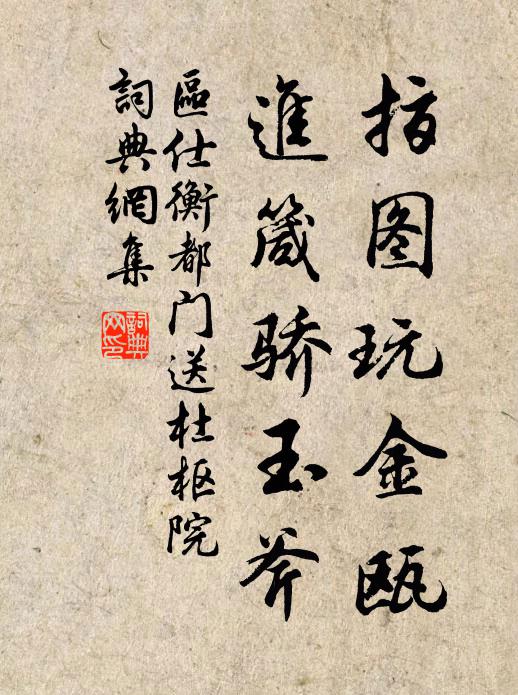 指图玩金瓯
進箴骄玉斧
區仕衡都门送杜枢院
詞典網集
詞典網印